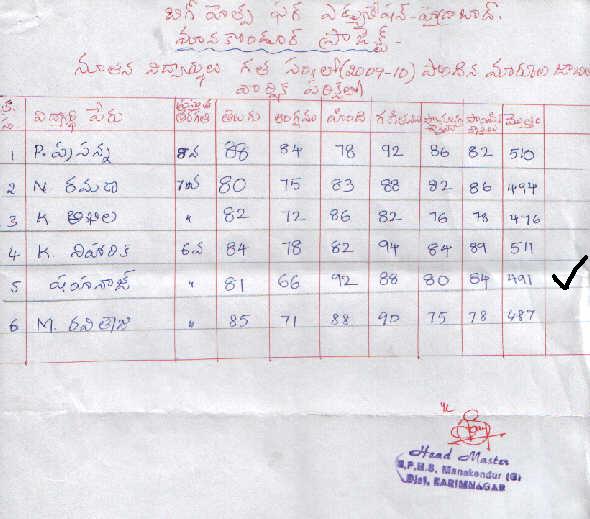 బిగ్ హెల్ప్ ఫర్ ఎడ్యుకేషన్-హైదరాబాద్.
మానకొండూర్ ప్రాజెక్ట్ -
నూతన విద్యార్థులు గత సం॥లో (2009-10) పొందిన మార్కుల
వార్షిక పరీక్షలో)
క్ర.సం. విద్యార్థి పేరు ప్రస్తుత తరగతి తెలుగు ఆంగ్లము హింది గణితము మొత్తం
1 P. ప్రసన్న 8వ 88 84 78 92 86 82 510
2 N రమాదే 7వ 80 75 83 88 82 86 494
3 K అఖిల " 82 72 86 82 76 78 476
4 K. నిహారిక 6వ 84 78 82 94 84 89 511
5 షహనాజ్ " 81 66 92 88 80 84 491
6 M. రవితేజ " 85 71 88 90 75 78 487
Head Master
Z.P.H.S. Manakondur (G)
Dist. KARIMNAGAR